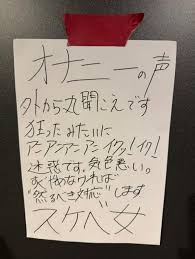 オナニーの声
外から丸聞こえです
狂ったみたいに
アーアーアーアーイクッ!イク!
迷惑です。気色悪い。
すぐやめなければ
"然るべき対応"します
スケベ女